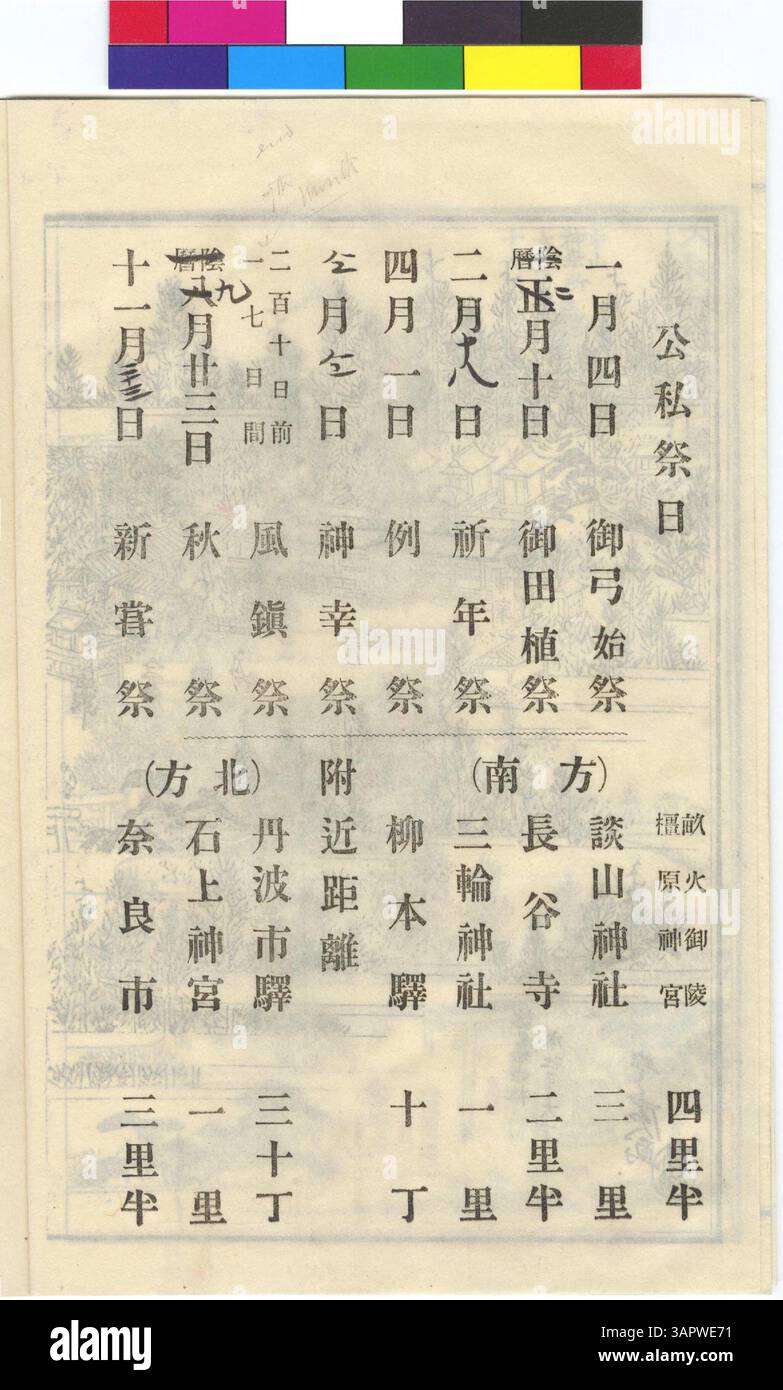 公私祭日
一月四日 御弓始祭
陰曆 正二月十日 御田植祭
二月十八日 祈年祭
四月一日 例祭
月 日 神幸祭
二百十日前
一七日間 風鎭祭
陰曆 八九月廿三日 秋祭
十一月二十三日 新嘗祭
畝火御陵
橿原神宮 四里半
(南方)
談山神社 三里
長谷寺 二里半
三輪神社 一里
柳本驛 十丁
附近距離
(北方)
丹波市驛 三十丁
石上神宮 一里
奈良市 三里半
end
7th
month
alamy
Image ID: 3APWE71
www.alamy.com